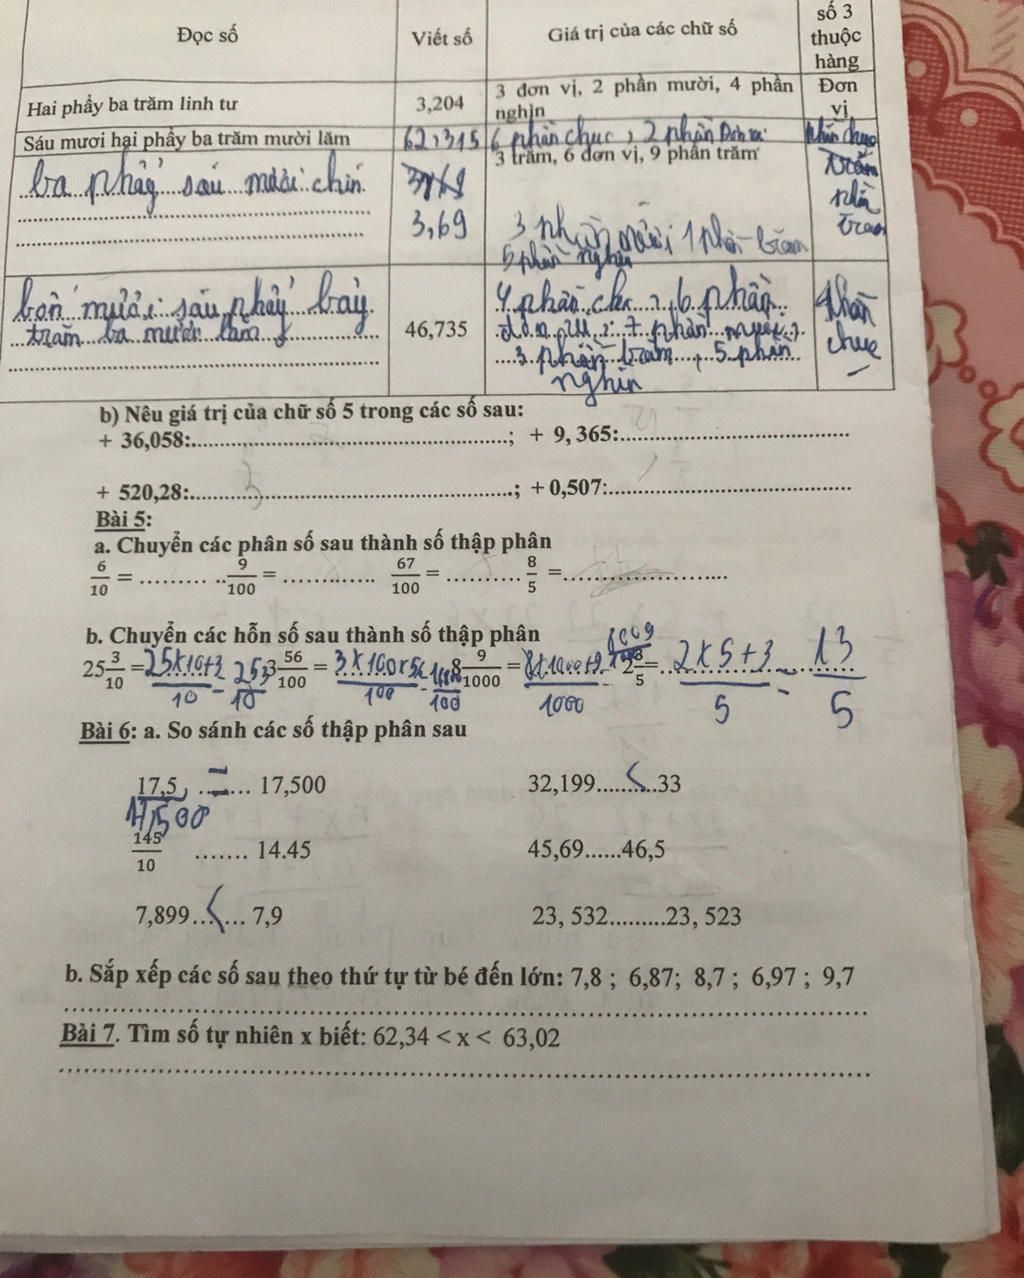 Đọc số Viết số Giá trị của các chữ số số 3 thuộc hàng
Hai phẩy ba trăm linh tư 3,204 3 đơn vị, 2 phần mười, 4 phần nghìn Đơn vị
Sáu mươi hai phẩy ba trăm mười lăm 62,315 6 phần chục, 2 phần Đơn vị phần chục
3 trăm, 6 đơn vị, 9 phần trăm trăm
ba phẩy sáu mươi chín
3,69 3 phần mười 1 phần trăm 5 phần nghìn phần trăm
bốn mươi sáu phẩy bảy trăm ba mươi lăm 46,735 4 phần chục, 6 phần đơn vị, 7 phần mười, 3 phần trăm, 5 phần nghìn phần chục
b) Nêu giá trị của chữ số 5 trong các số sau:
+ 36,058:..........; + 9, 365:..........
+ 520,28:..........; + 0,507:..........
Bài 5:
a. Chuyển các phân số sau thành số thập phân
6/10 = .......... 9/100 = .......... 67/100 = .......... 8/5 = ..........
b. Chuyển các hỗn số sau thành số thập phân
25 3/10 = 25x10+3/10 = 253/10 3 56/100 = 3x100x56/100 = 8 9/1000 = 8x1000+9/1000 = 8009 2 3/5 = 2x5+3/5 = 13/5
Bài 6: a. So sánh các số thập phân sau
17,5 ...=... 17,500 32,199...<...33
17,500
145/10 ....... 14.45 45,69......46,5
7,899...<... 7,9 23, 532.........23, 523
b. Sắp xếp các số sau theo thứ tự từ bé đến lớn: 7,8 ; 6,87; 8,7 ; 6,97 ; 9,7
Bài 7. Tìm số tự nhiên x biết: 62,34 < x < 63,02